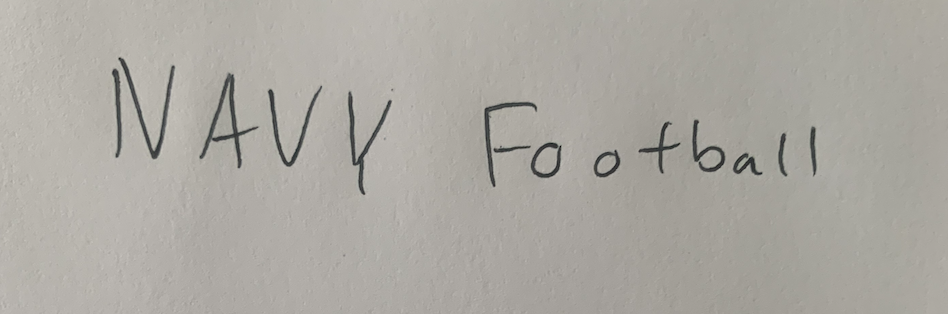 NAVY Football